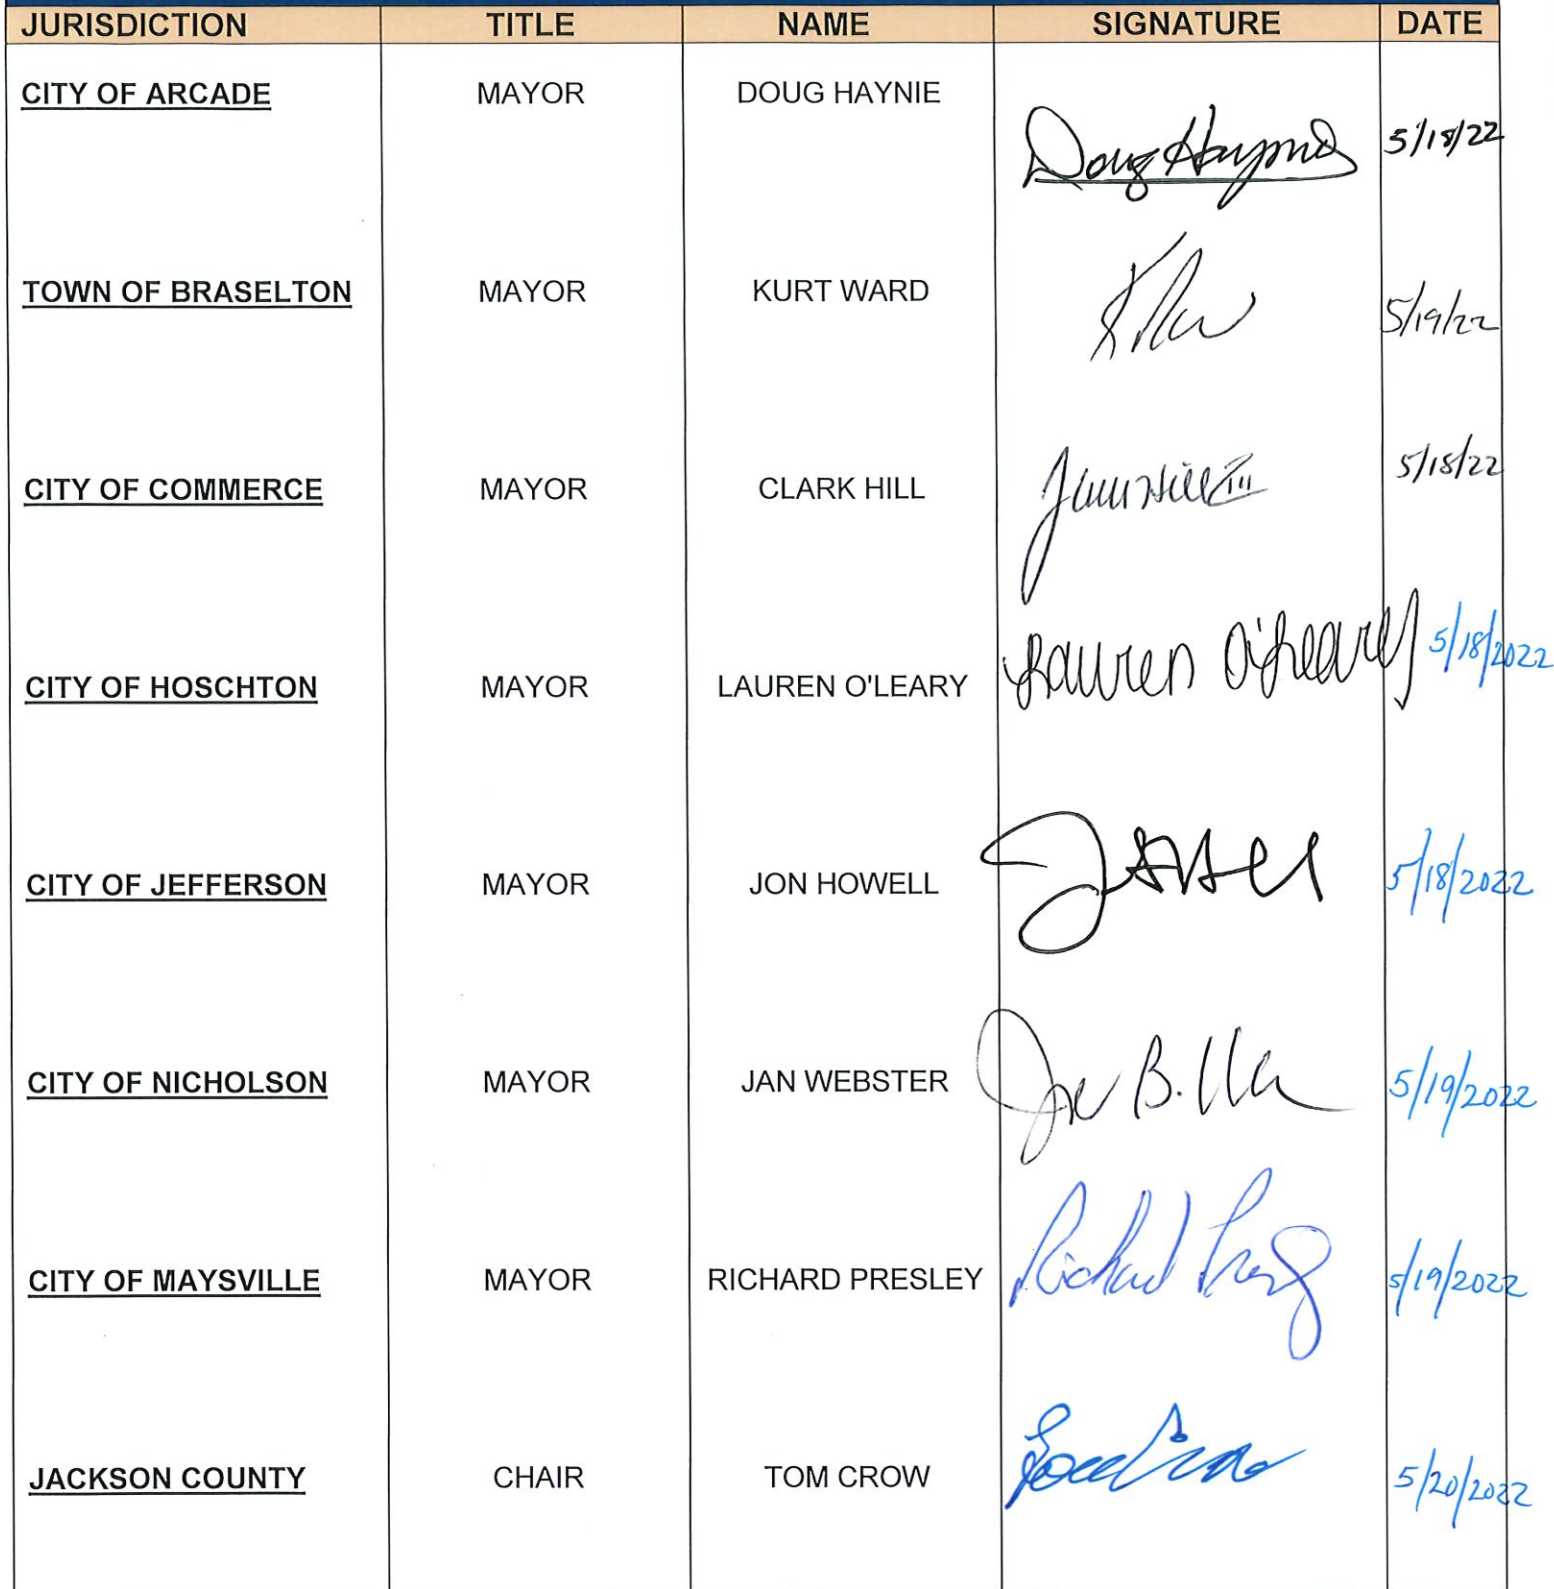 JURISDICTION TITLE NAME SIGNATURE DATE
CITY OF ARCADE MAYOR DOUG HAYNIE Doug Haynie 5/18/22
TOWN OF BRASELTON MAYOR KURT WARD 5/19/22
CITY OF COMMERCE MAYOR CLARK HILL 5/18/22
CITY OF HOSCHTON MAYOR LAUREN O'LEARY Lauren O'Leary 5/18/2022
CITY OF JEFFERSON MAYOR JON HOWELL 5/18/2022
CITY OF NICHOLSON MAYOR JAN WEBSTER 5/19/2022
CITY OF MAYSVILLE MAYOR RICHARD PRESLEY Richard Presley 5/19/2022
JACKSON COUNTY CHAIR TOM CROW Tom Crow 5/20/2022